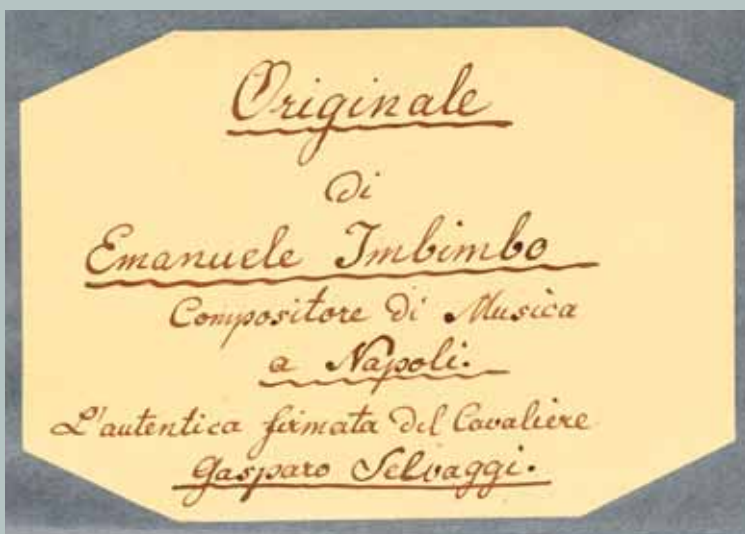 Originale
di
Emanuele Imbimbo
Compositore di Musica
a Napoli.
L'autentica firmata del Cavaliere
Gasparo Selvaggi.